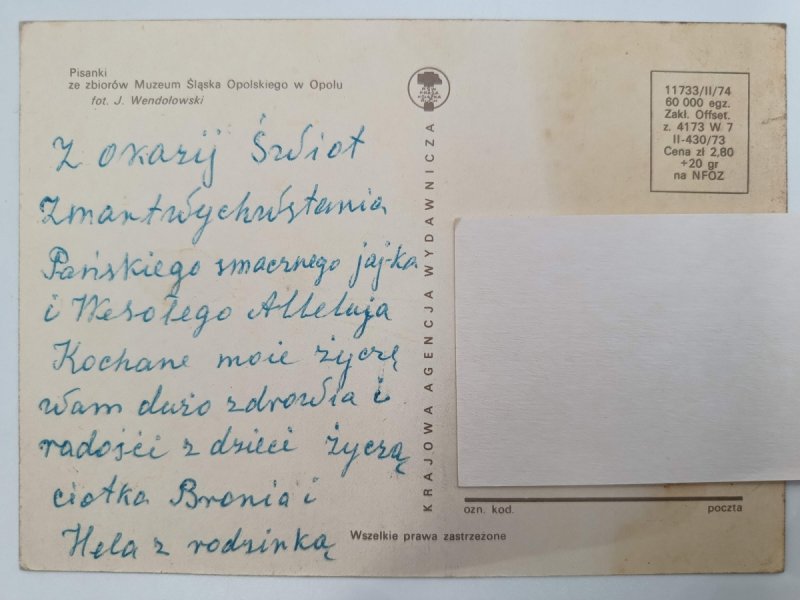 Pisanki
ze zbiorów Muzeum Śląska Opolskiego w Opolu
fot. J. Wendołowski
11733/II/74
60 000 egz.
Zakł. Offset.
z. 4173 W 7
II-430/73
Cena zł 2,80
+20 gr
na NFOZ
Z okazij Świot
Zmartwychwstania
Pańskiego smacznego jaj-ka
i Wesołego Alleluja
Kochane moie życzę
wam dużo zdrowia i
radości z dzieci życzą
ciotka Bronia i
Hela z rodzinką
KRAJOWA AGENCJA WYDAWNICZA
ozn. kod.
poczta
Wszelkie prawa zastrzeżone